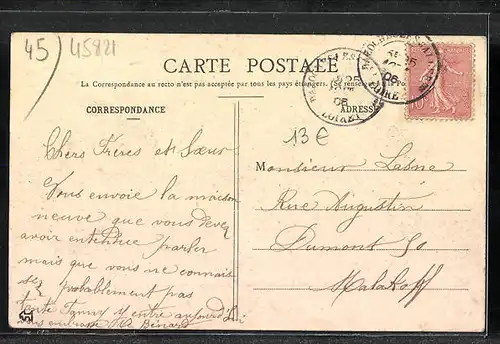 45) 45821
CARTE POSTALE
La Correspondance au recto n'est pas acceptée par tous les pays étrangers. (Se renseigner
CORRESPONDANCE
ADRESSE
13 €
Chers Frères et Sœur
Vous envoie la maison
neuve que vous devez
avoir entendue parler
mais que vous ne connais
sez probablement pas
tente Fanny y entre aujourd'hui
vous embrasse Bénard
Monsieur Lesne
Rue Augustin
Dumont 50
Malakoff
LOIRET
06
LOIRET
06